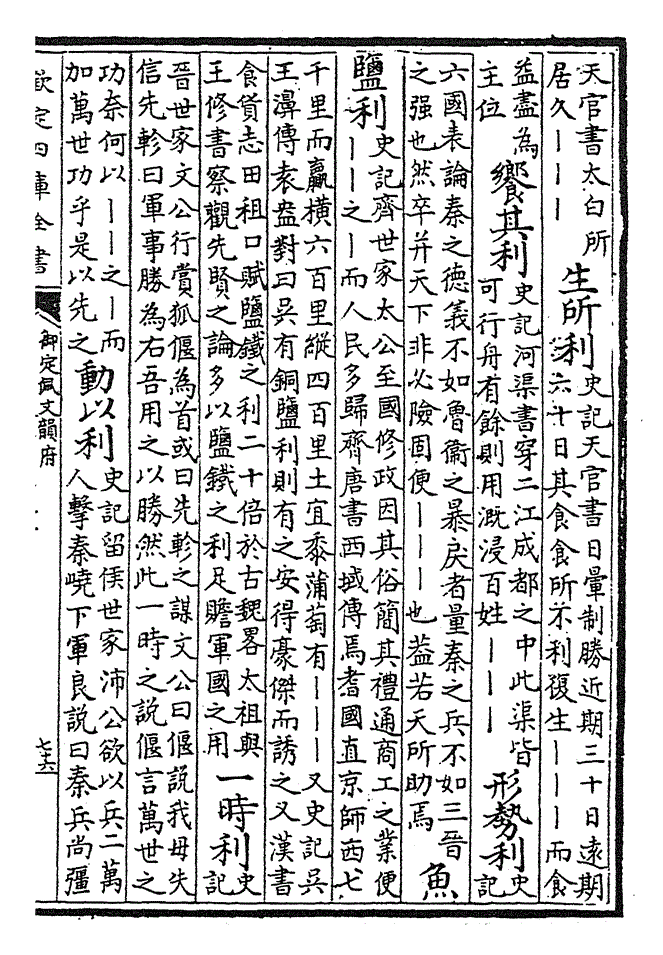 天官書太白所
居久｜｜｜
生所利
史記天官書日暈制勝近期三十日遠期
六十日其食食所不利復生｜｜｜而食
益盡為
主位
饗其利
史記河渠書穿二江成都之中此渠皆
可行舟有餘則用溉浸百姓｜｜｜
形勢利
史
記
六國表論秦之德義不如魯衞之暴戾者量秦之兵不如三晉
之强也然卒并天下非必險固便｜｜｜也葢若天所助焉
魚
鹽利
史記齊世家太公至國修政因其俗簡其禮通商工之業便
｜｜之｜而人民多歸齊唐書西域傳焉耆國直京師西七
千里而贏橫六百里縱四百里土宜黍蒲萄有｜｜｜又史記吳
王濞傳袁盎對曰吳有銅鹽利則有之安得豪傑而誘之又漢書
食貨志田租口賦鹽鐵之利二十倍於古魏畧太祖與
王修書察觀先賢之論多以鹽鐵之利足贍軍國之用
一時利
史
記
晉世家文公行賞狐偃為首或曰先軫之謀文公曰偃說我毋失
信先軫曰軍事勝為右吾用之以勝然此一時之說偃言萬世之
功奈何以｜｜之｜而
加萬世功乎是以先之
動以利
史記留侯世家沛公欲以兵二萬
人擊秦嶢下軍良說曰秦兵尚彊
欽定四庫全書
御定佩文韻府
七十六